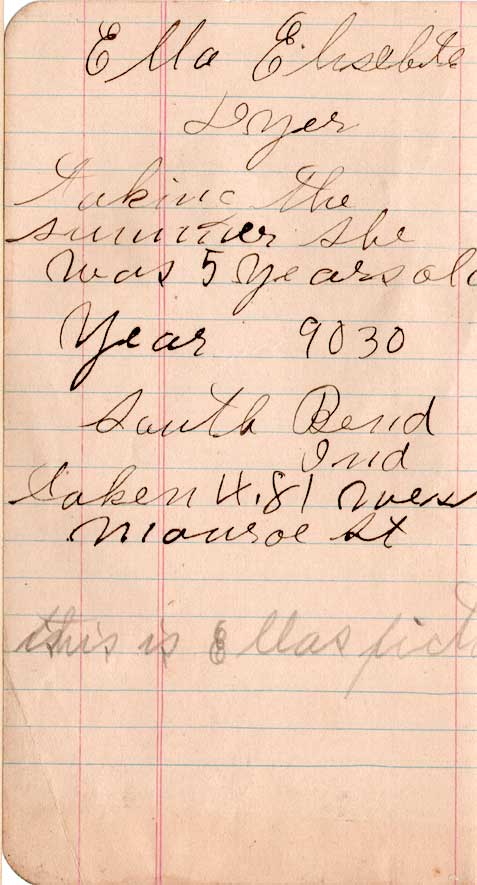 Ella Elisebite
Dyer
taking the
summer she
was 5 years old
Year 9030
South Bend
Ind
taken 4.81 wes
Monroe St
this is Ellas pict